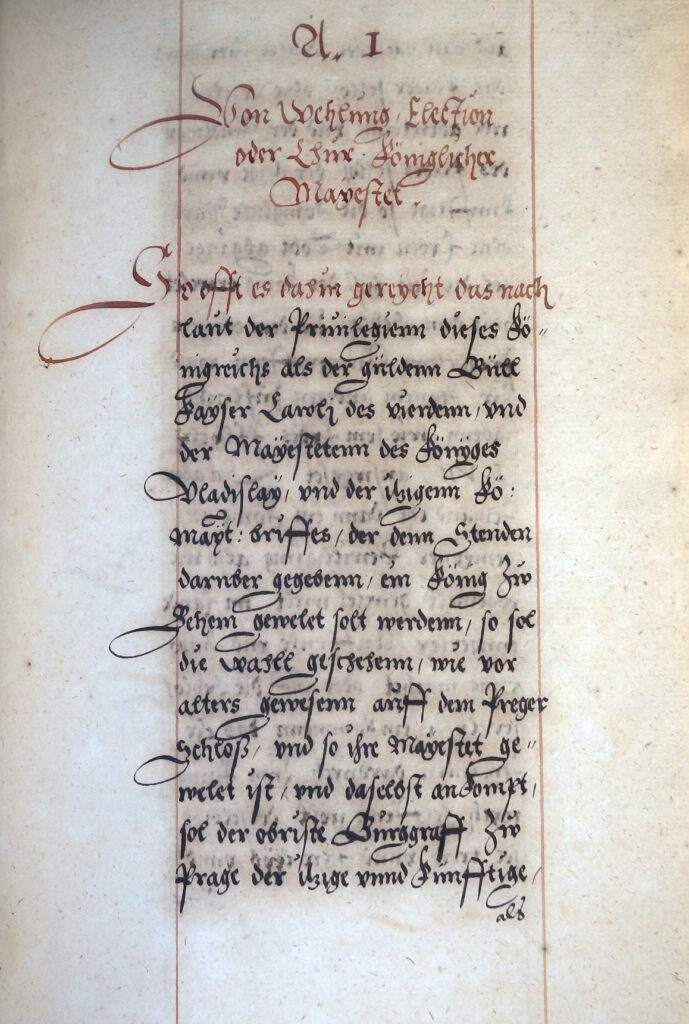 A. 1
Von Wehlung, Election
oder Chur Königlicher
Mayestet.
So offt es dahin gereycht das nach
laut der Priuilegienn dieses Kö-
nigreichs als der güldenn Büll
Kayser Carolj des vierdenn, vnd
der Mayestetenn des Könyges
Vladislay, vnd der itzigenn Kö:
Mayt: briffes, der denn Stenden
daruber gegebenn, ein König zw
Behem gewelet solt werdenn, so sol
die wahll geschehenn, wie vor
alters gewesenn auff dem Preger
Schloß, vnd so ihre Mayestet ge-
welet ist, vnd daselbst ankompt,
sol der obriste Burggraff zw
Prage der itzige vnnd Kunfftige,
als